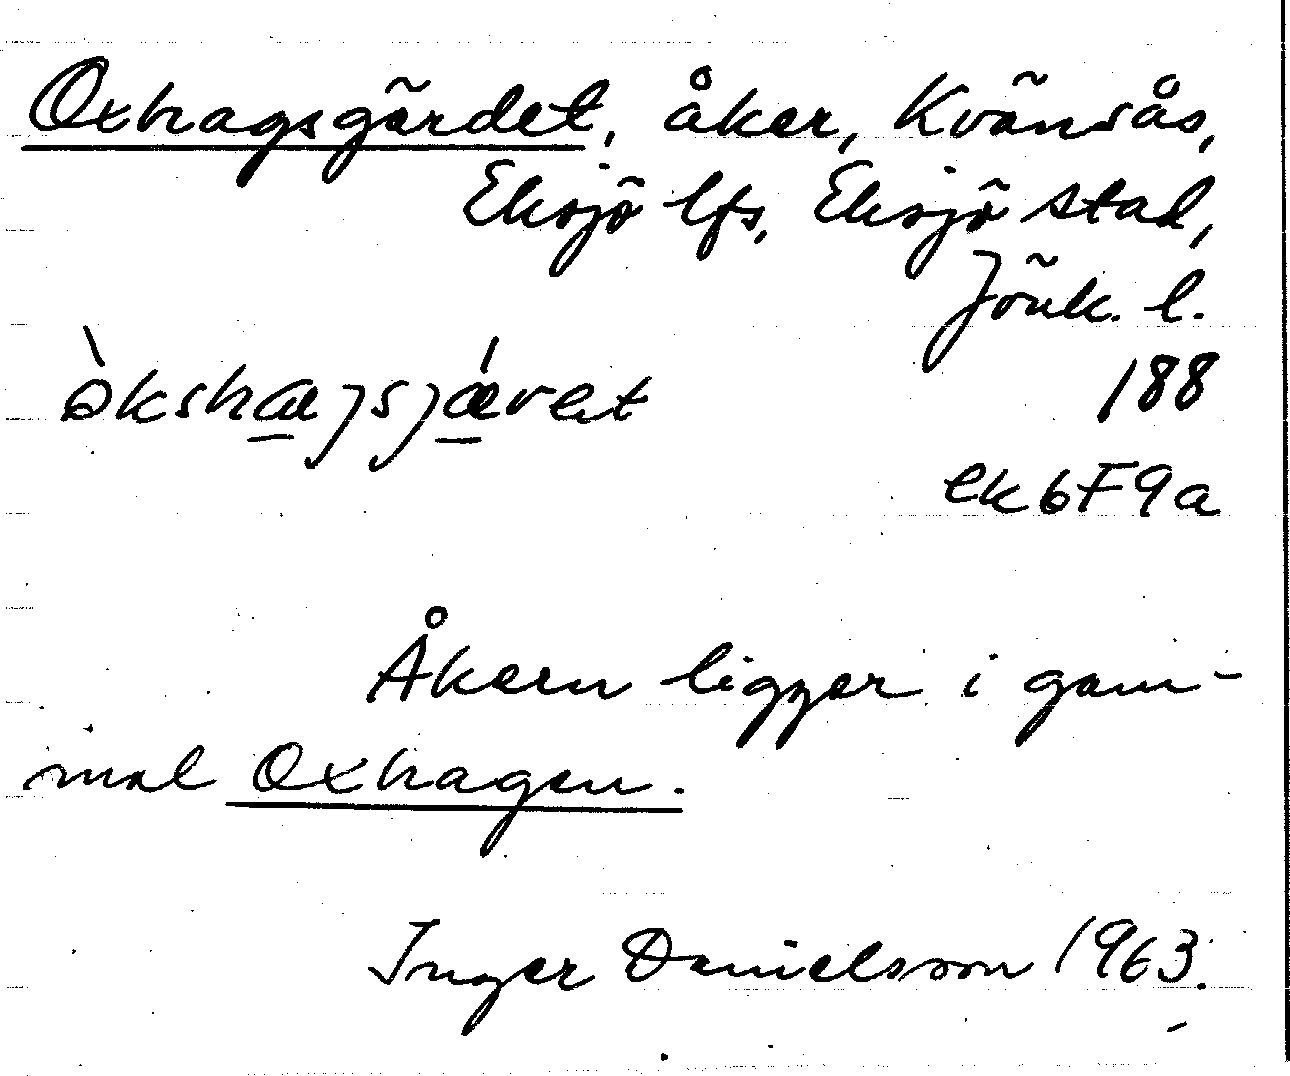 Oxhagsgärdet, åker, Kvänsås,
Eksjö lfs, Eksjö stad,
Jönk. l.
òkshæjsjǽret 188
ek6F9a
Åkern ligger i gam-
mal Oxhagen.
Inger Danielsson 1963.